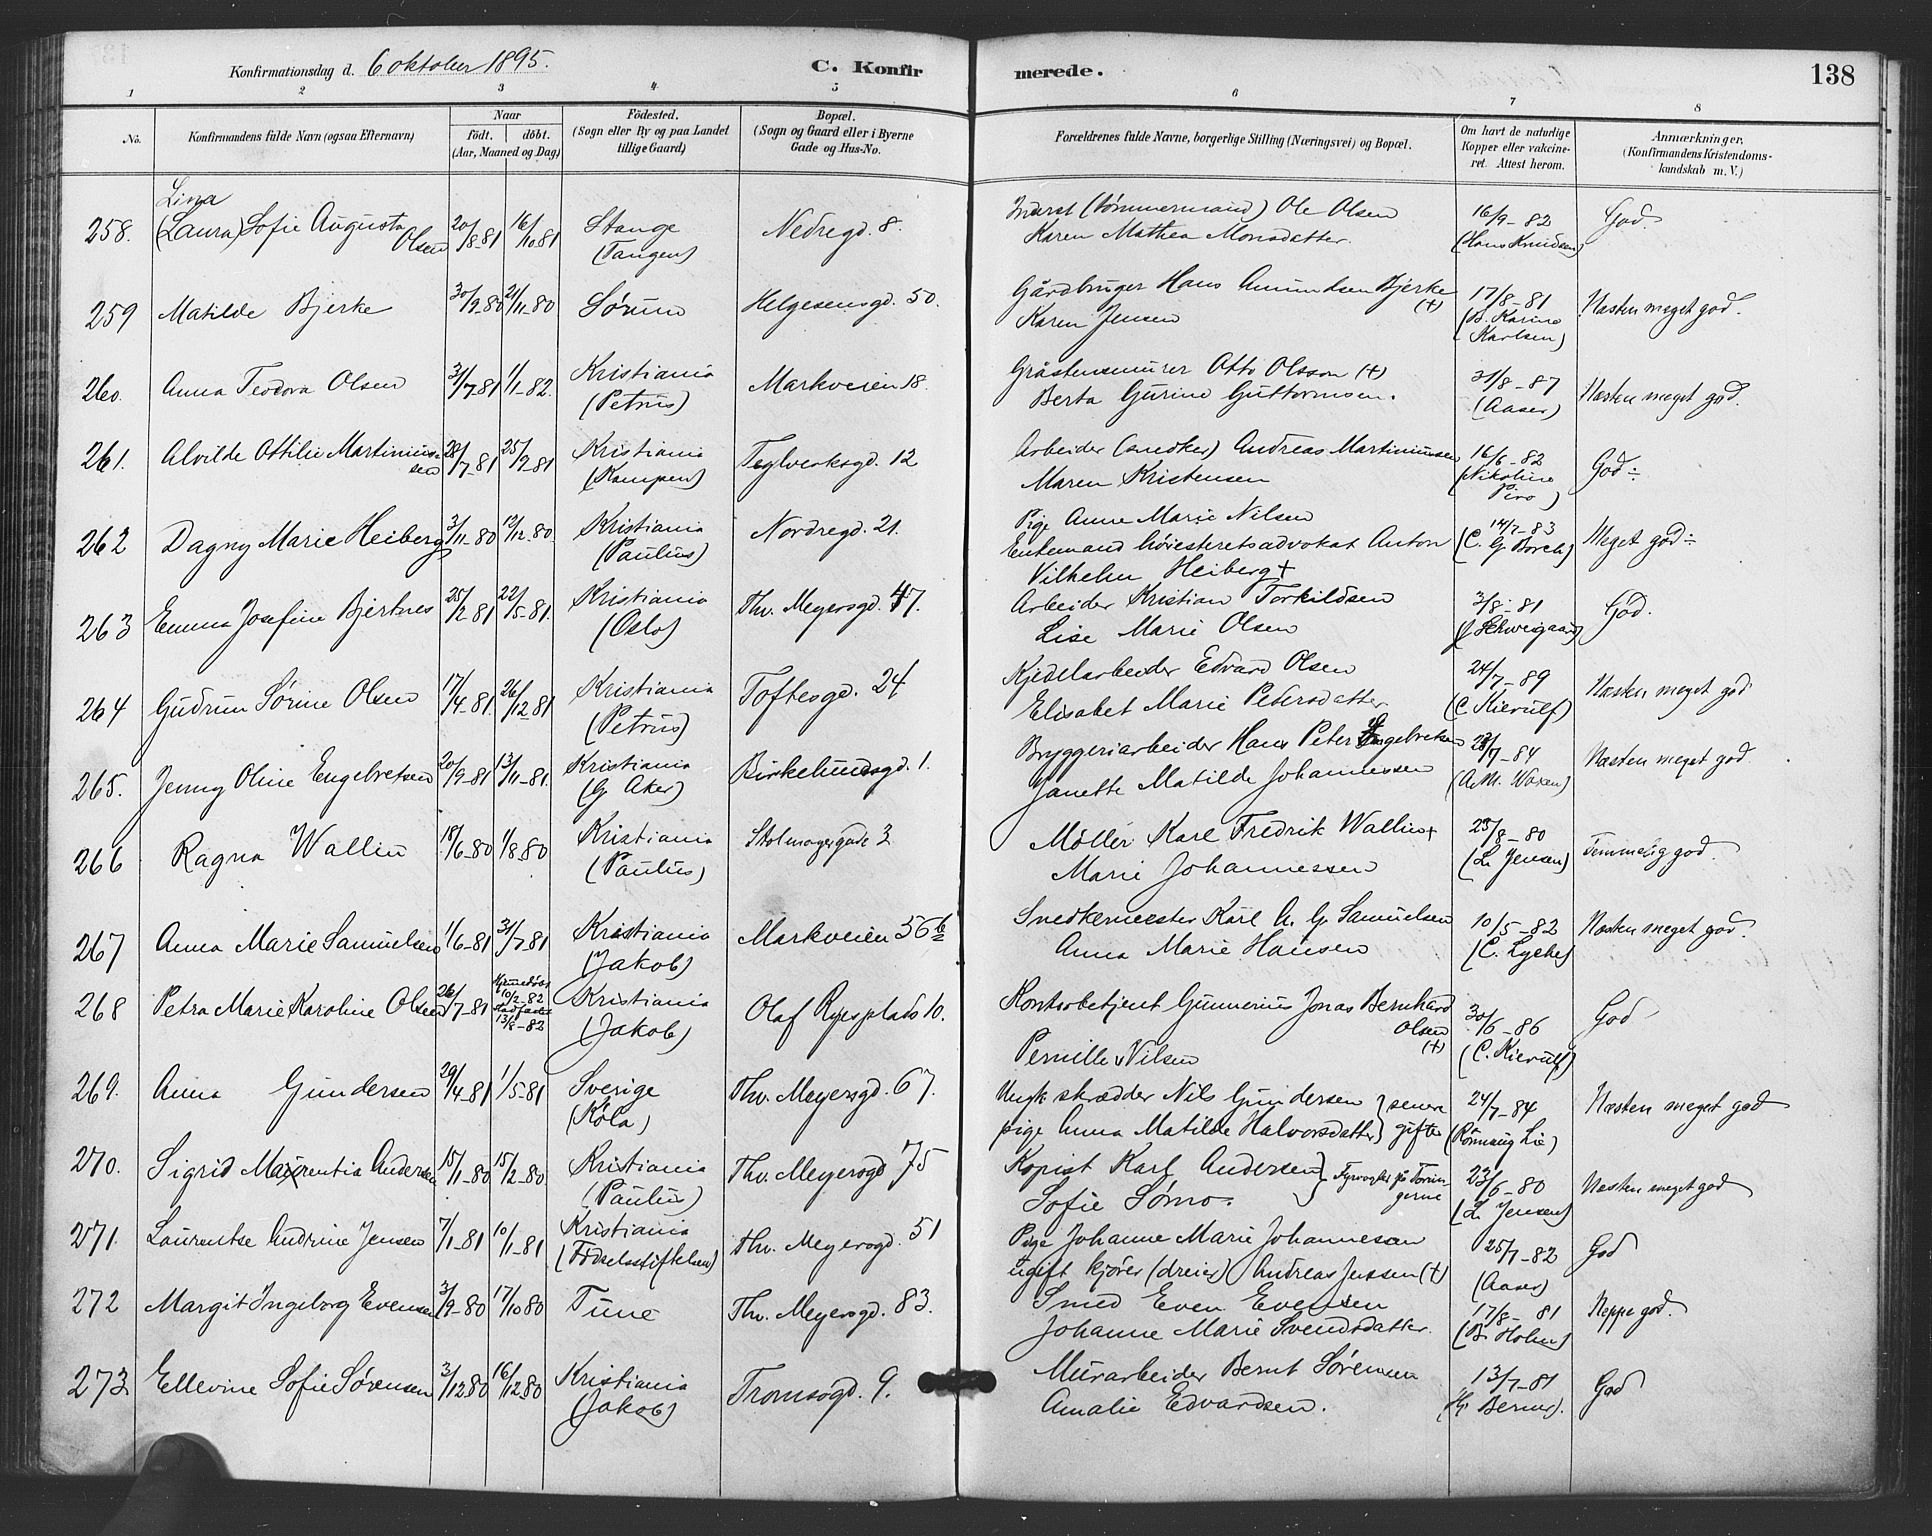 Konfirmationsdag d. 6 oktober 1895. C. Konfirmerede. 138
1 2 3 4 5 6 7 8
No. Konfirmandens fulde Navn (ogsaa Efternavn) Naar født. døbt. (Aar, Maaned og Dag) Fødested. (Sogn eller By og paa Landet tillige Gaard) Bopæl. (Sogn og Gaard eller i Byerne Gade og Hus-No. Forældrenes fulde Navne, borgerlige Stilling (Næringsvei) og Bopæl. Om havt de naturlige Kopper eller vakcineret. Attest herom. Anmærkninger. (Konfirmandens Kristendomskundskab m. V.)
Lina
258. (Laura) Sofie Augusta Olsen 20/8-81 16/10 81 Stange (Tangen) Nedregd. 8. Inderst (tømmermand) Ole Olsen
Karen Mathea Monsdatter. 16/9-82 (Hans Knudsen) God.
259 Matilde Bjerke 30/9-80 21/11-80 Sørum Helgesensgd. 50. Gårdbruger Hans Amundsen Bjerke (+)
Karen Jensen 17/8-81 (B. Karine Karlsen) Næsten meget god.
260. Anna Teodora Olsen 31/7-81 1/1-82. Kristiania (Petrus) Markveien 18. Gråstensmurer Otto Olsson (+)
Berta Gurine Guttormsen. 31/8-87 (Aaser) Næsten meget god.
261. Alvilde Ottilie Martiniussen 28/7-81 25/9-81 Kristiania (Kampen) Teglverksgd. 12 Arbeider (snedker) Andreas Martiniussen
Maren Kristensen 16/6-82 (Nikoline Piro) God ÷
262 Dagny Marie Heiberg 3/11-80 12/12-80 Kristiania (Paulus) Nordregd. 21. Pige Anne Marie Nilsen
Enkemand høiesteretsadvokat Anton
Vilhelm Heiberg + 14/7-83 (C. G. Borch) Meget god ÷
263 Emma Josefine Bjertnes 25/2-81 22/5-81. Kristiania (Oslo) Thv. Meyersgd. 47. Arbeider Kristian Torkildsen
Lise Marie Olsen 3/8-81 (Schweigaard) God.
264 Gudrun Sørine Olsen 17/4-81. 26/12 81 Kristiania (Petrus) Toftesgd. 24 Kjedelarbeider Edvard Olsen
Elisabet Marie Petersdatter 24/7-89 (C. Kierulf) Næsten meget god
265. Jenny Oline Engebretsen 20/9-81 13/11-81. Kristiania (G. Aker) Birkelundsgd. 1. Bryggeriarbeider Hans Peter Engebretsen
Janette Matilde Johannessen 28/7-84 (A. M. Waren) Næsten meget god.
266 Ragna Wallin 18/6-80 1/8-80 Kristiania (Paulus) Stolmagergade 3 Møller Karl Fredrik Wallin +
Marie Johannessen 25/8-80 (L. Jensen) Temmelig god.
267 Anna Marie Samuelsen 1/6-81 31/7-81 Kristiania (Jakob) Markveien 56 b Snedkermester Karl A. G. Samuelsen
Anna Marie Hansen 10/5-82 (C. Lyche) Næsten meget god.
268 Petra Marie Karoline Olsen 26/7-81 Hjemmedøbt 10/2-82 Stadfæstet 13/8-82 Kristiania (Jakob) Olaf Ryesplads 10. Kontorbetjent Gunnerius Jonas Bernhard Olsen (+)
Pernille Nilsen 30/6-86 (C. Kierulf) God
269. Anna Gundersen 29/4-81 1/5-81 Sverige (Köla) Thv. Meyersgd. 67. Ungk. skrædder Nils Gundersen } senere
pige Anna Matilde Halvorsdatter } gifte 24/7-84 (Rönnaug Lie) Næsten meget god
270. Sigrid Maurentia Andersen 15/1-80 15/2-80. Kristiania (Paulus) Thv. Meyersgd 75 Kopist Karl Andersen } Fyrvogter på Torungerne
Sofie Sømo. 23/6-80 (L. Jensen) Næsten meget god
271. Laurentse Andrine Jensen 7/1-81 10/1-81 Kristiania (Fødselsstiftelsen) Thv. Meyersgd. 51 Pige Johanne Marie Johannessen
ugift kjører (dreier) Andreas Jenssen (+) 25/7-82 (Aars) God
272 Margit Ingeborg Evensen 3/9-80 17/10 80 Tune Thv. Meyersgd. 83. Smed Even Evensen
Johanne Marie Svendsdatter. 17/8-81 (B. Holm) Neppe god.
273 Ellevine Sofie Sørensen 3/12 80 16/12 80 Kristiania (Jakob) Tromsøgd. 9. Murarbeider Bernt Sørensen
Amalie Edvardsen. 13/7-81 (Hj. Berner). God